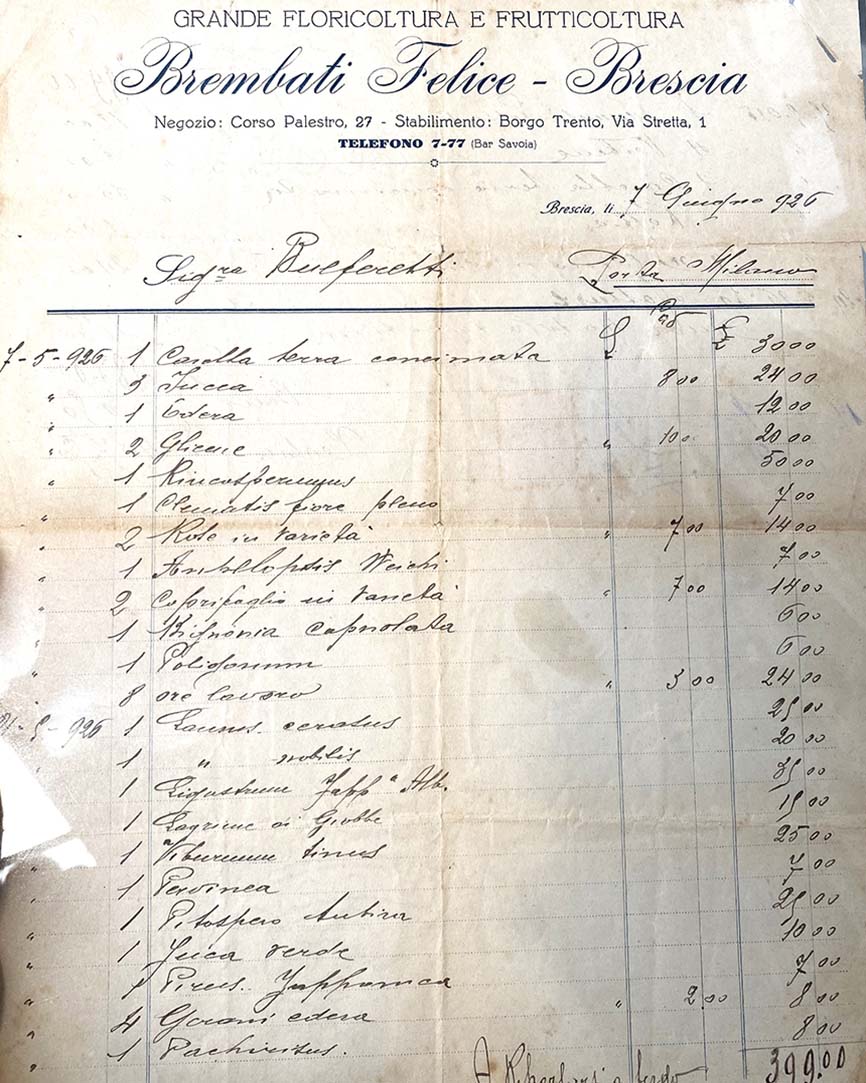 GRANDE FLORICOLTURA E FRUTTICOLTURA
Brembati Felice - Brescia
Negozio: Corso Palestro, 27 - Stabilimento: Borgo Trento, Via Stretta, 1
TELEFONO 7-77 (Bar Savoia)
Brescia, li 7 Giugno 926
Sigra Bulferetti Porta Milano
7-5-926 1 Casetta terra concimata £ £ 30 00
" 3 Jucca 8 00 24 00
" 1 Edera 12 00
" 2 Glicene " 10 0 20 00
" 1 Rincospermus 50 00
" 1 Clematis fiore pleno 7 00
" 2 Rose in varietà " 7 00 14 00
" 1 7 00
" 2 Coprifoglio in varietà " 7 00 14 00
" 1 Bignonia capnolata 6 00
" 1 Poligonum 6 00
" 8 ore lavoro " 3 00 24 00
21-5-926 1 Laurus ceratus 25 00
" 1 " nobilis 20 00
" 1 Ligustrum Japp" Alb. 35 00
" 1 Lagrime di Giobbe 15 00
" 1 Viburnum tinus 25 00
" 1 Pervinca 7 00
" 1 Pitosforo 25 00
" 1 Jucca verde 10 00
" 1 Pirus Japponica 7 00
" 4 Gerani edera " 2.00 8 00
" 1 8 00
399.00